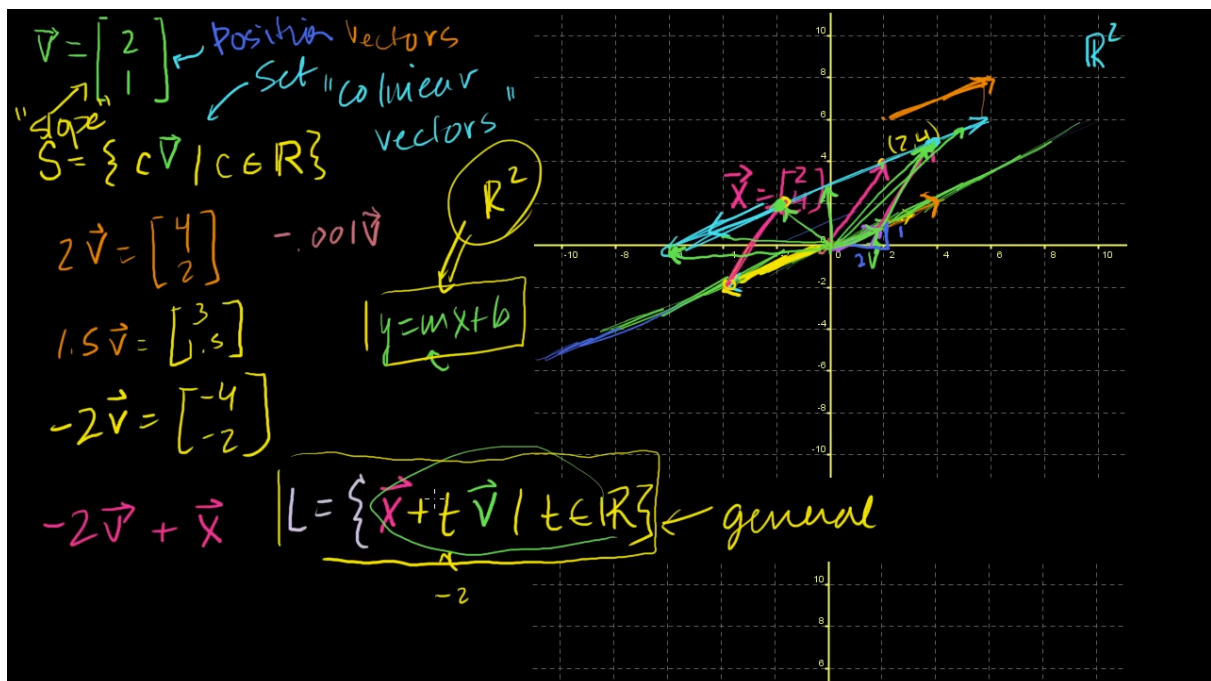 v⃗ = [2 1] ← Position Vectors
"slope"
Set "colinear vectors"
S = { c v⃗ | c ∈ ℝ }
2v⃗ = [4 2]
-.001v⃗
1.5v⃗ = [3 1.5]
-2v⃗ = [-4 -2]
-2v⃗ + x⃗
ℝ²
y=mx+b
L = { x⃗ + t v⃗ | t ∈ ℝ } ← general
-2
ℝ²
10
8
6
(2,4)
4
x⃗ = [2 4]
2
1
-10 -8 -6 -4 -2 0 2 4 6 8 10
2
v⃗
-2
-4
-6
-8
-10
10
8
6